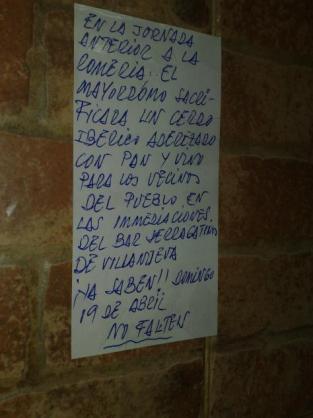 EN LA JORNADA
ANTERIOR A LA
ROMERIA. EL
MAYORDOMO SACRI-
FICARA UN CERDO
IBERICO ADEREZADO
CON PAN Y VINO
PARA LOS VECINOS
DEL PUEBLO EN
LAS INMEDIACIONES.
DEL BAR
DE VILLANUEVA
¡YA SABEN!! DOMINGO
19 DE ABRIL
NO FALTEN